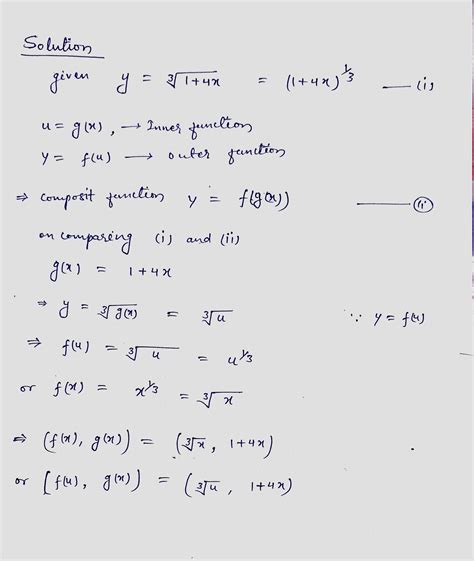 Solution
given y = ∛(1+4x) = (1+4x)^1/3 —(i)
u = g(x), → Inner function
y = f(u) → outer function
⇒ composit function y = f(g(x)) —(ii)
on comparing (i) and (ii)
g(x) = 1+4x
⇒ y = ∛g(x) = ∛u ∵ y = f(u)
⇒ f(u) = ∛u = u^1/3
or f(x) = x^1/3 = ∛x
⇒ (f(x), g(x)) = (∛x, 1+4x)
or [f(u), g(x)) = (∛u, 1+4x)